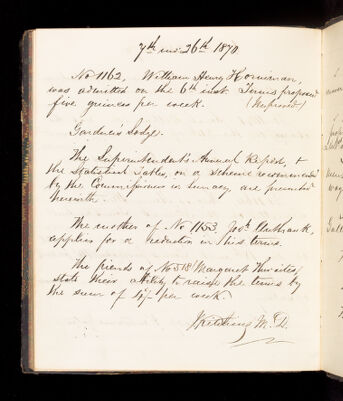 7th mo 26th 1870
No 1162, William Henry Horniman,
was admitted on the 6th inst. Terms proposed
five guineas per week. (Approved)
Gardner's Lodge.
The Superintendent's Annual Report, &
the Statistical Tables, on a scheme recommended
by the Commissioners in Lunacy are presented
herewith.
The mother of No 1153, Josh.
applies for a reduction in his terms.
The friends of No 518 Margaret
state their ability to raise the terms by
the sum of 4/- per week.
Kitching M.D.